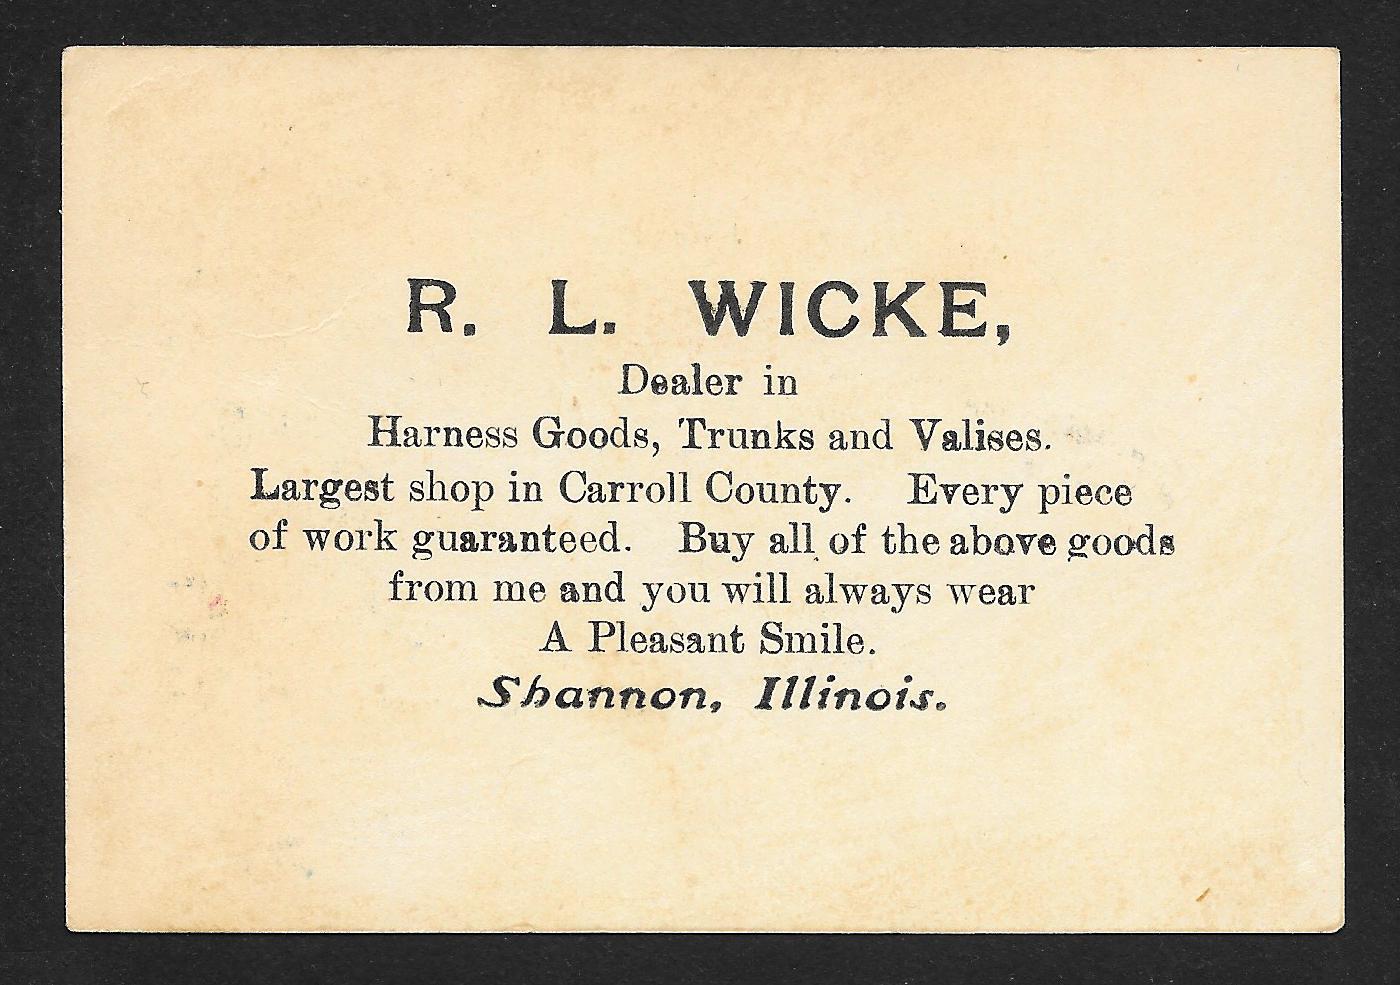 R. L. WICKE,
Dealer in
Harness Goods, Trunks and Valises.
Largest shop in Carroll County. Every piece
of work guaranteed. Buy all of the above goods
from me and you will always wear
A Pleasant Smile.
Shannon, Illinois.